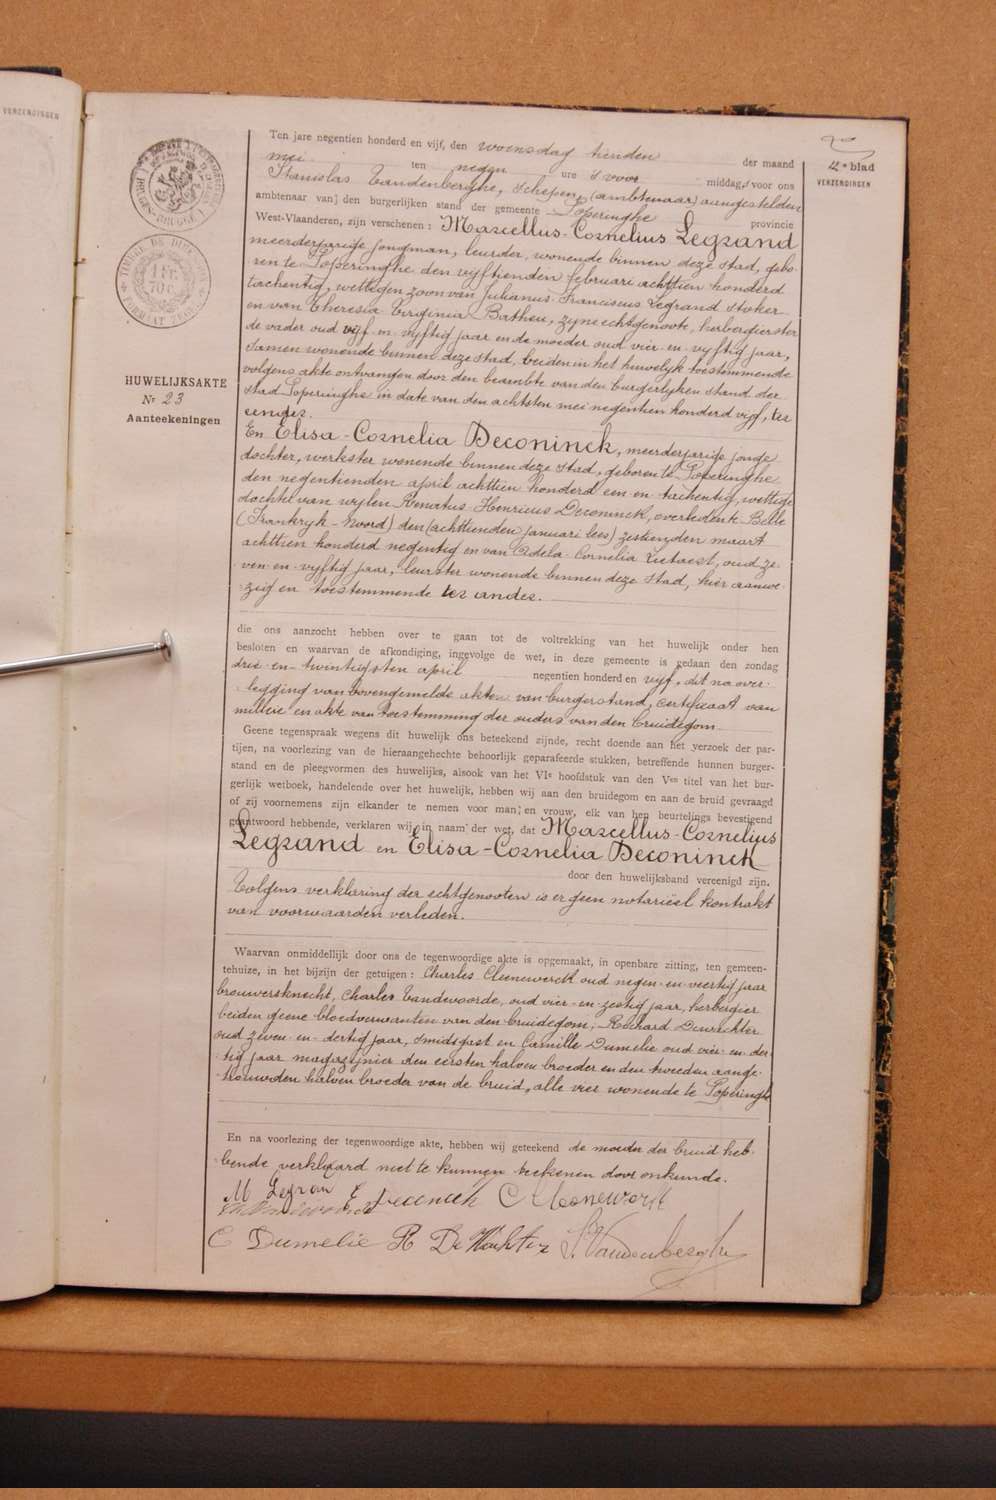 VERZENDINGEN
TIMBRE DE DIMENSION
1 Fr. 70 c.
HUWELIJKSAKTE
Nr 23
Aanteekeningen
12e blad
VERZENDINGEN
Ten jare negentien honderd en vijf, den woensdag tienden der maand
mei ten negen ure 's voor middags, voor ons
Stanislas Vandenberghe, Schepen, (ambtenaar) aangestelden
ambtenaar van] den burgerlijken stand der gemeente Poperinghe provincie
West-Vlaanderen, zijn verschenen : Marcellus-Cornelius Legrand
meerderjarige jongman, leurder, wonende binnen deze stad, gebo-
ren te Poperinghe den vijftienden februari achttien honderd
tachentig, wettigen zoon van Julianus-Franciscus Legrand stoker
en van Theresia-Virginia Batheu, zijne echtgenoote, herbergierster
de vader oud vijf-en-vijftig jaar en de moeder oud vier-en-vijftig jaar,
samen wonende binnen deze stad, beiden in het huwelijk toestemmende
volgens akte ontvangen door den beambte van den burgerlijken stand der
stad Poperinghe in date van den achtsten mei negentien honderd vijf, ter
eender.
En Elisa-Cornelia Deconinck, meerderjarige jonge
dochter, werkster wonende binnen deze stad, geboren te Poperinghe
den negentienden april achttien honderd een en tachentig, wettige
dochter van wijlen Renatus Henricus Deconinck, overleden te Belle
(Frankrijk-Noord) den (achttienden januari lees) zestienden maart
achttien honderd negentig en van Adela-Cornelia Lietaert, oud ze-
ven-en-vijftig jaar, leurster wonende binnen deze stad, hier aanwe-
zig en toestemmende ter ander.
die ons aanzocht hebben over te gaan tot de voltrekking van het huwelijk onder hen
besloten en waarvan de afkondiging, ingevolge de wet, in deze gemeente is gedaan den zondag
drie-en-twintigsten april negentien honderd en vijf, dit na over-
legging van bovengemelde akten van burgerstand, certificaat van
militie en akte van toestemming der ouders van den bruidegom.
Geene tegenspraak wegens dit huwelijk ons beteekend zijnde, recht doende aan het verzoek der par-
tijen, na voorlezing van de hieraangehechte behoorlijk geparafeerde stukken, betreffende hunnen burger-
stand en de pleegvormen des huwelijks, alsook van het VIe hoofdstuk van den Ven titel van het bur-
gerlijk wetboek, handelende over het huwelijk, hebben wij aan den bruidegom en aan de bruid gevraagd
of zij voornemens zijn elkander te nemen voor man; en vrouw, elk van hen beurtelings bevestigend
geantwoord hebbende, verklaren wij in naam der wet, dat Marcellus-Cornelius
Legrand en Elisa-Cornelia Deconinck
door den huwelijksband vereenigd zijn.
Volgens verklaring der echtgenooten is er geen notariëel kontrakt
van voorwaarden verleden.
Waarvan onmiddellijk door ons de tegenwoordige akte is opgemaakt, in openbare zitting, ten gemeen-
tehuize, in het bijzijn der getuigen : Charles Cleenewerck oud negen-en-veertig jaar
brouwersknecht, Charles Vandevoorde, oud vier-en-zestig jaar, herbergier
beiden geene bloedverwanten van den bruidegom, Richard Dewachter
oud zeven-en-dertig jaar, smidsgast en Camille Dumelie oud vier-en-der-
tig jaar magazijnier den eersten halven broeder en den tweeden aange-
trouwden halven broeder van de bruid, alle vier wonende te Poperinghe
En na voorlezing der tegenwoordige akte, hebben wij geteekend de moeder der bruid heb-
bende verklaard niet te kunnen teekenen door onkunde.
M Legran E Deconick C Cleenewerck
C Dumelie R De Wachter S. Vandenberghe